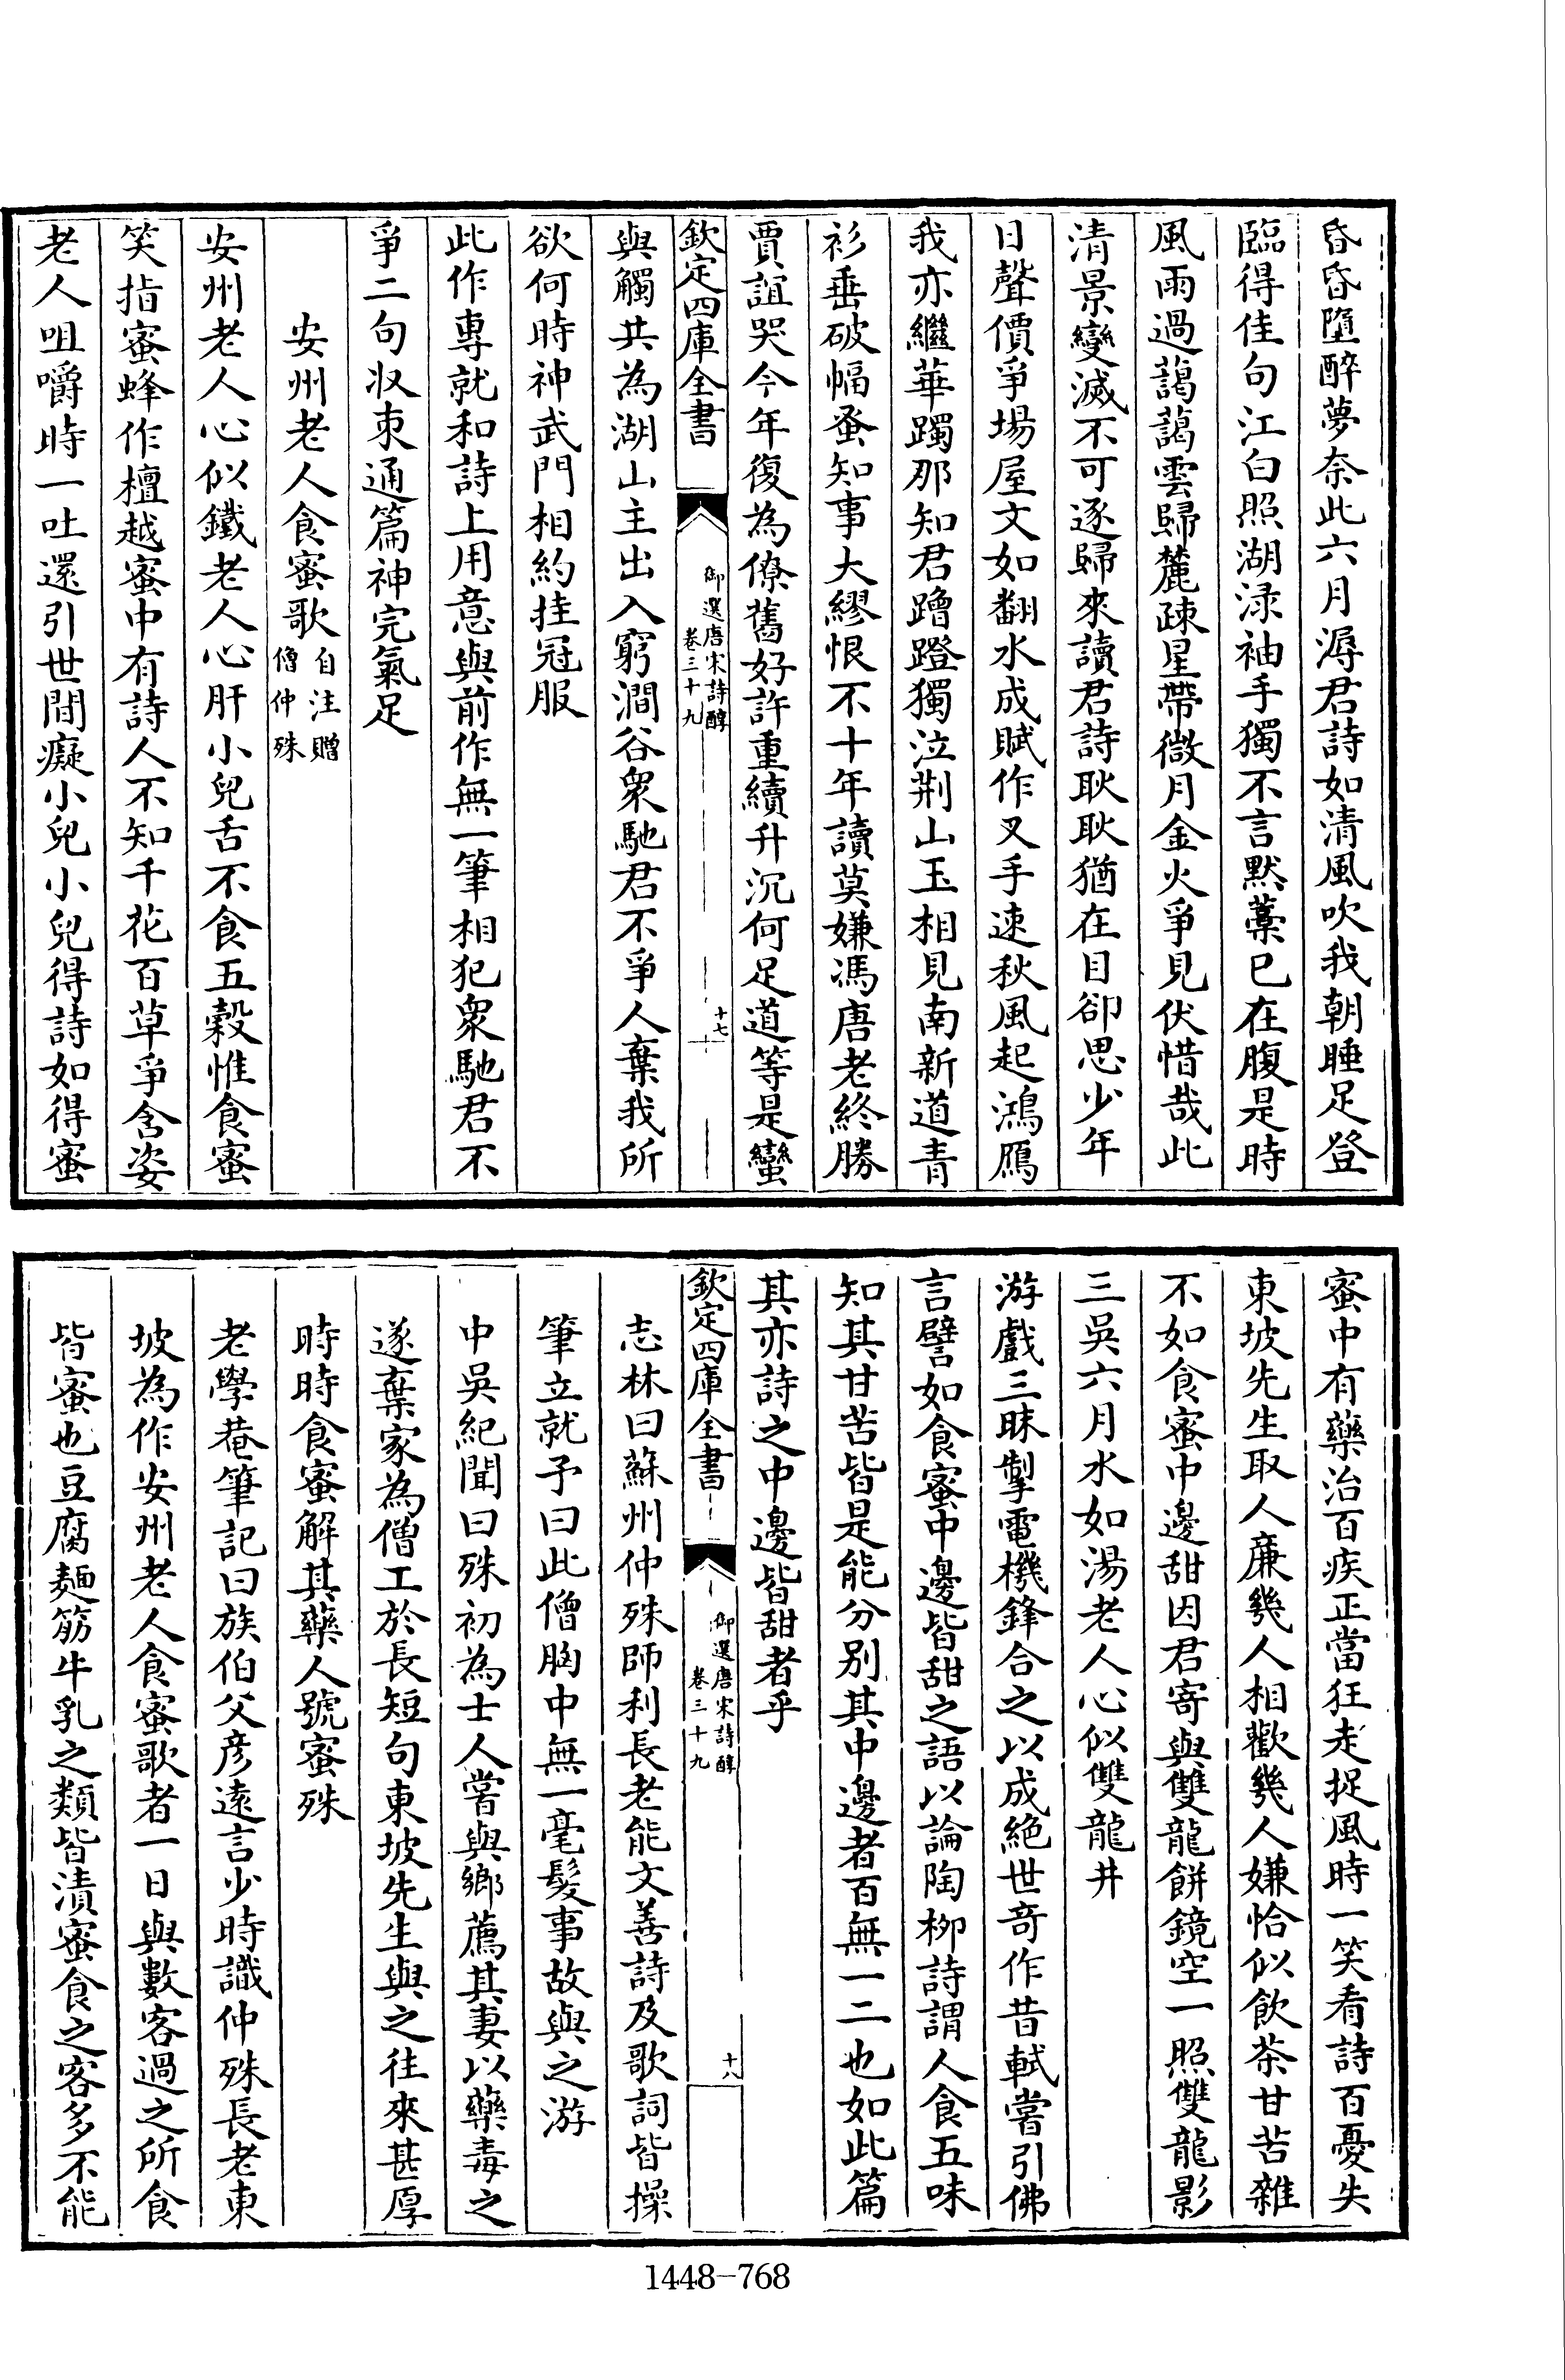 昏昏墮醉夢奈此六月溽君詩如清風吹我朝睡足登
臨得佳句江白照湖渌袖手獨不言默藳已在腹是時
風雨過藹藹雲歸麓疎星帶微月金火爭見伏惜哉此
清景變滅不可逐歸來讀君詩耿耿猶在目卻思少年
日聲價爭場屋文如翻水成賦作叉手速秋風起鴻鴈
我亦繼華躅那知君蹭蹬獨泣荆山玉相見南新道青
衫垂破幅蚤知事大繆恨不十年讀莫嫌馮唐老終勝
賈誼哭今年復為僚舊好許重續升沉何足道等是蠻
欽定四庫全書
御選唐宋詩醇
卷三十九
十七
與觸共為湖山主出入窮澗谷衆馳君不爭人棄我所
欲何時神武門相約挂冠服
此作專就和詩上用意與前作無一筆相犯衆馳君不
爭二句収束通篇神完氣足
安州老人食蜜歌
自注贈
僧仲殊
安州老人心似鐵老人心肝小兒舌不食五穀惟食蜜
笑指蜜蜂作檀越蜜中有詩人不知千花百草爭含姿
老人咀嚼時一吐還引世間癡小兒小兒得詩如得蜜
蜜中有藥治百疾正當狂走捉風時一笑看詩百憂失
東坡先生取人廉幾人相歡幾人嫌恰似飲茶甘苦雜
不如食蜜中邊甜因君寄與雙龍餅鏡空一照雙龍影
三吳六月水如湯老人心似雙龍井
游戲三昧掣電機鋒合之以成絕世奇作昔軾嘗引佛
言譬如食蜜中邊皆甜之語以論陶柳詩謂人食五味
知其甘苦皆是能分别其中邊者百無一二也如此篇
其亦詩之中邊皆甜者乎
欽定四庫全書
御選唐宋詩醇
卷三十九
十八
志林曰蘇州仲殊師利長老能文善詩及歌詞皆操
筆立就予曰此僧胸中無一毫髮事故與之游
中吳紀聞曰殊初為士人嘗與鄉薦其妻以藥毒之
遂棄家為僧工於長短句東坡先生與之往來甚厚
時時食蜜解其藥人號蜜殊
老學菴筆記曰族伯父彥遠言少時識仲殊長老東
坡為作安州老人食蜜歌者一日與數客過之所食
皆蜜也豆腐麵筋牛乳之類皆漬蜜食之客多不能
1448-768